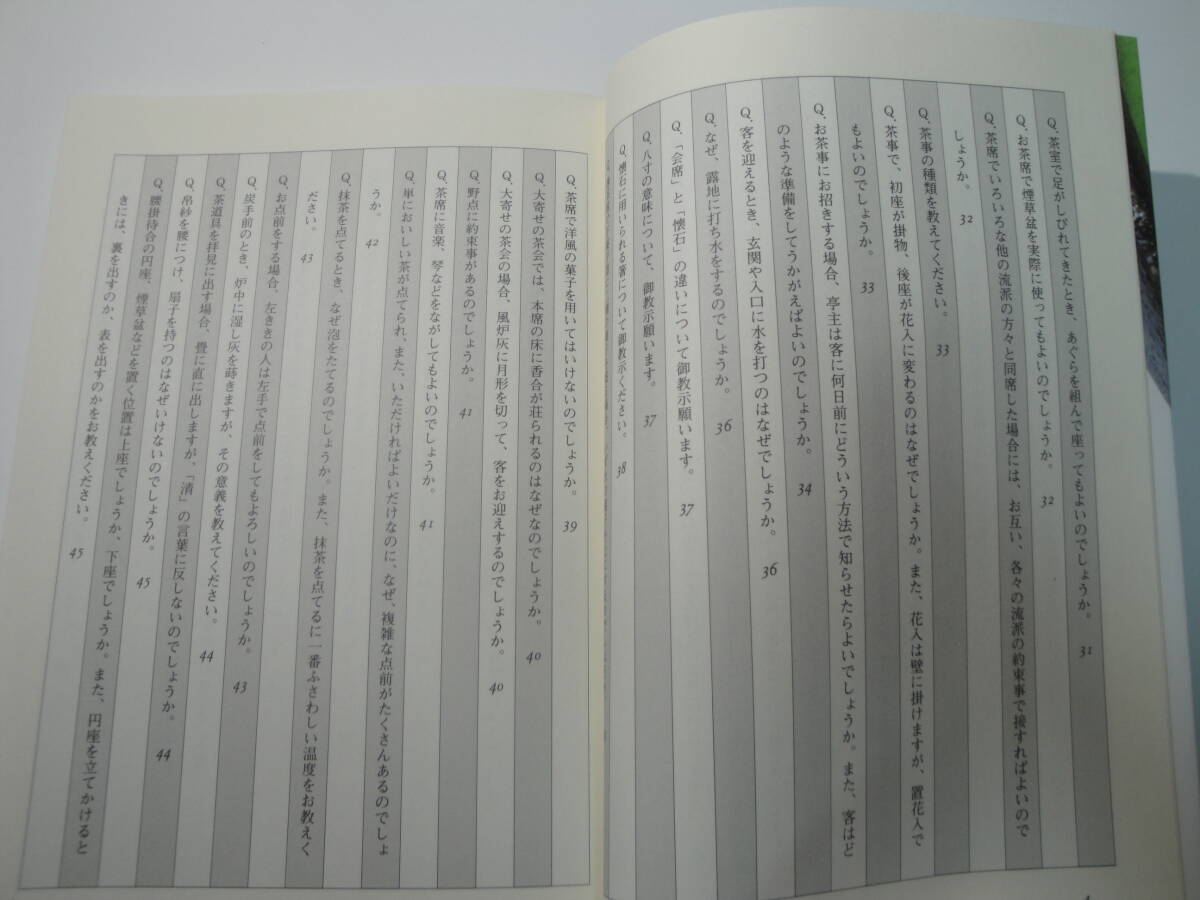 Q、茶室で足がしびれてきたとき、あぐらを組んで座ってもよいのでしょうか。 31
Q、お茶席で煙草盆を実際に使ってもよいのでしょうか。 32
Q、茶席でいろいろな他の流派の方々と同席した場合には、お互い、各々の流派の約束事で接すればよいので
しょうか。 32
Q、茶事の種類を教えてください。 33
Q、茶事で、初座が掛物、後座が花入に変わるのはなぜでしょうか。また、花入は壁に掛けますが、置花入で
もよいのでしょうか。 33
Q、お茶事にお招きする場合、亭主は客に何日前にどういう方法で知らせたらよいでしょうか。また、客はど
のような準備をしてうかがえばよいのでしょうか。 34
Q、客を迎えるとき、玄関や入口に水を打つのはなぜでしょうか。 36
Q、なぜ、露地に打ち水をするのでしょうか。 36
Q、「会席」と「懐石」の違いについて御教示願います。 37
Q、八寸の意味について、御教示願います。 37
Q、懐石に用いられる箸について御教示ください。 38
Q、茶席で洋風の菓子を用いてはいけないのでしょうか。 39
Q、大寄せの茶会では、本席の床に香合が荘られるのはなぜなのでしょうか。 40
Q、大寄せの茶会の場合、風炉灰に月形を切って、客をお迎えするのでしょうか。 40
Q、野点に約束事があるのでしょうか。 41
Q、茶席に音楽、琴などをながしてもよいのでしょうか。 41
Q、単においしい茶が点てられ、また、いただければよいだけなのに、なぜ、複雑な点前がたくさんあるのでしょ
うか。 42
Q、抹茶を点てるとき、なぜ泡をたてるのでしょうか。また、抹茶を点てるに一番ふさわしい温度をお教えく
ださい。 43
Q、お点前をする場合、左ききの人は左手で点前をしてもよろしいのでしょうか。 43
Q、炭手前のとき、炉中に湿し灰を蒔きますが、その意義を教えてください。 44
Q、茶道具を拝見に出す場合、畳に直に出しますが、「清」の言葉に反しないのでしょうか。 44
Q、帛紗を腰につけ、扇子を持つのはなぜいけないのでしょうか。 45
Q、腰掛待合の円座、煙草盆などを置く位置は上座でしょうか、下座でしょうか。また、円座を立てかけると
きには、裏を出すのか、表を出すのかをお教えください。 45